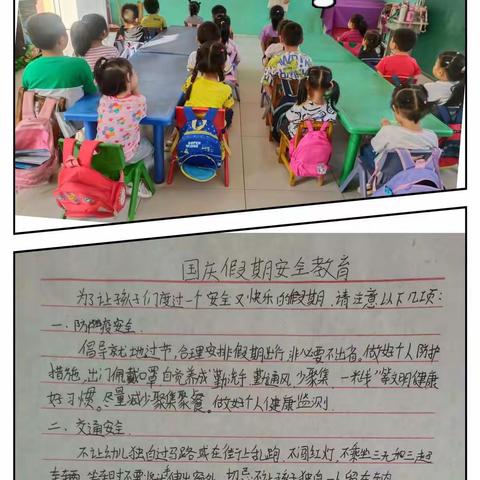 国庆假期安全教育
为了让孩子们度过一个安全又快乐的假期,请注意以下几项:
一、防疫安全
倡导就地过节,合理安排假期出行,非必要不出省。做好个人防护
措施,出门佩戴口罩,自觉养成“勤洗手、勤通风、少聚集、一米线”等文明健康
好习惯。尽量减少聚集聚餐。做好个人健康监测
二、交通安全
不让幼儿独自过马路或在街上乱跑,不闯红灯,不乘坐三无和三超
车辆,